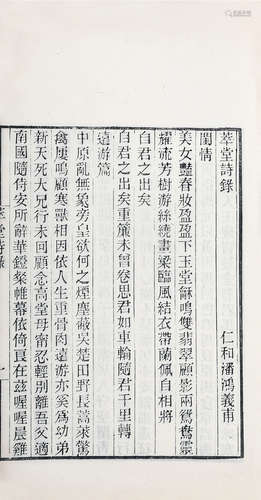 萃堂詩錄
仁和潘鴻儀甫
閨情
美女豔春妝盈盈下玉堂穌鳴雙翡翠顧影兩鴛鴦靈
耀流芳樹游絲繞畫梁臨風結衣帶蘭佩自相將
自君之出矣
自君之出矣重簾未曾卷思君如車輪隨君千里轉
遠游篇
中原亂無象旁皇欲何之煙塵蔽吳楚田野長蒿萊驚
禽屢鳴顧寒獸相因依人生重骨肉遠游亦奚爲幼弟
新夭死大兄行未回顧念高堂母甯忍輕別離吾父適
南國隨侍安所辭華鐙粲帷幕歌倚良在茲喔喔晨雞
萃堂詩錄
一